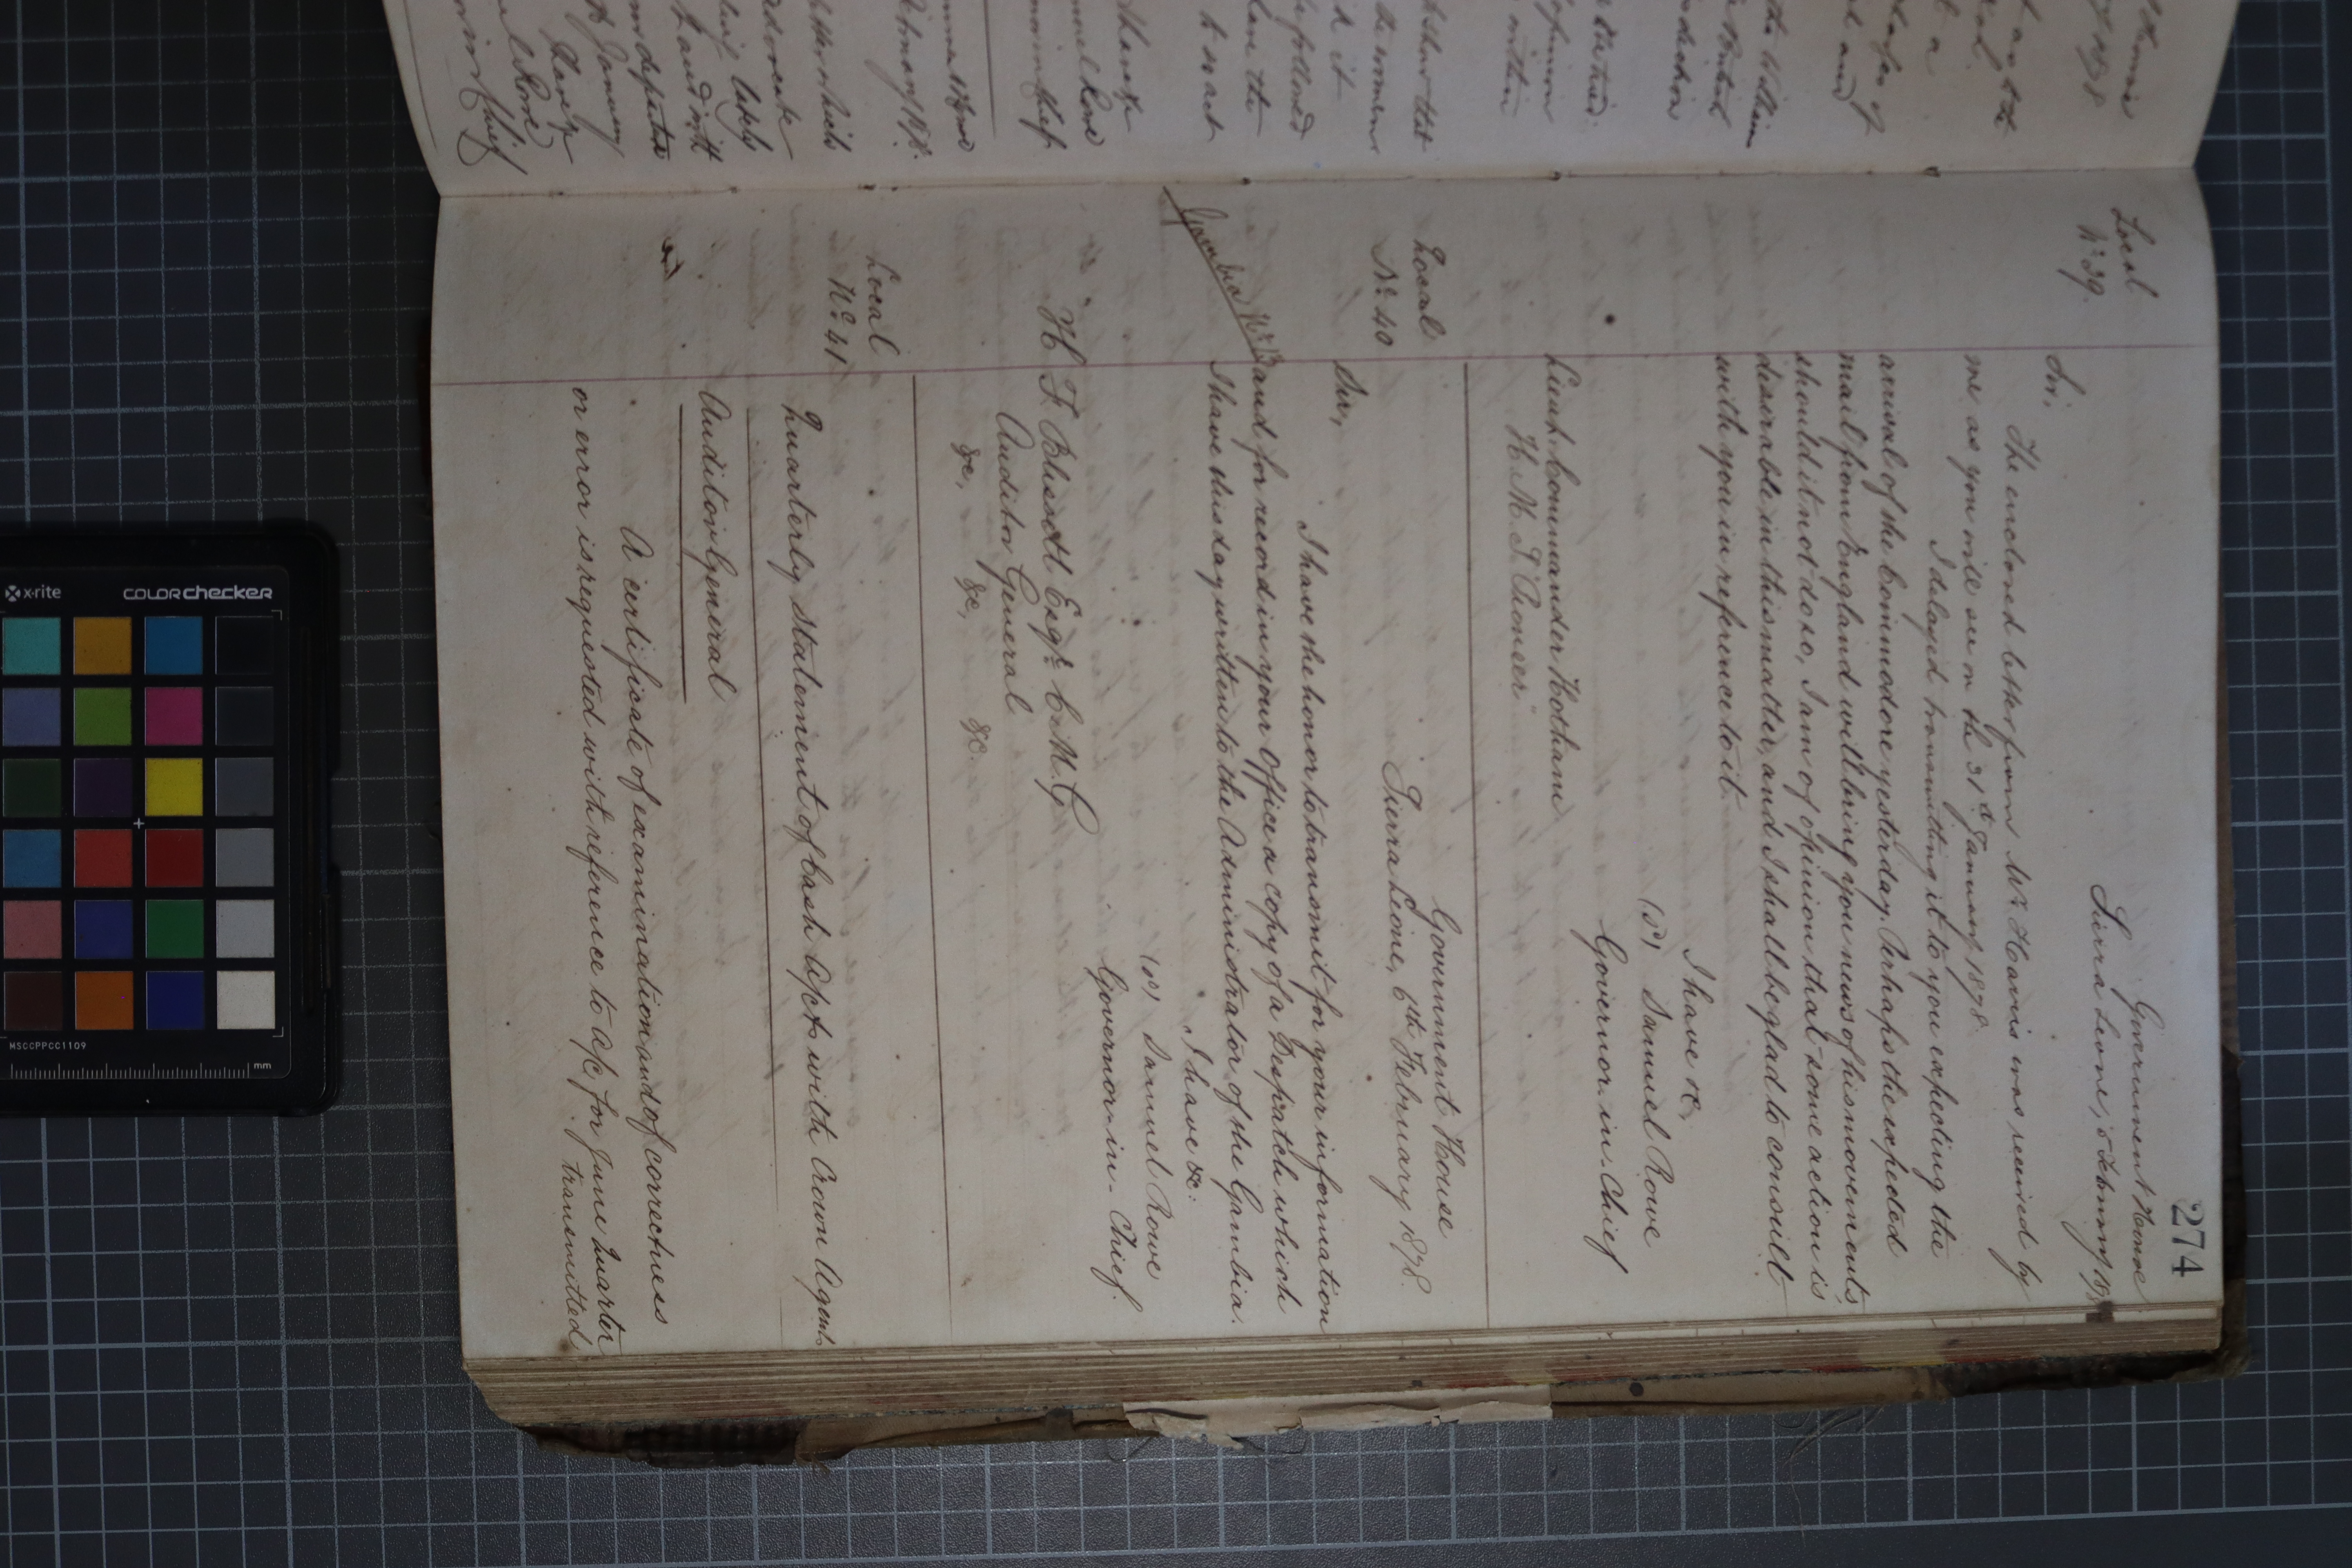 274
Local
No. 39.
Government House
Sierra Leone, 5 February 1878
Sir,
The enclosed letter from Mr. Harris was received by
me as you will see on the 31st January 1878.
I delayed transmitting it to you expecting the
arrival of the Commodore yesterday. Perhaps the expected
mail from England will bring you news of his movements,
should it not do so, I am of opinion that some action is
desirable in this matter, and I shall be glad to consult
with you in reference to it.
I have &c,
(sd) Samuel Rowe
Governor in Chief
Lieut. Commander Hotham
H. M. S. "Pioneer"
Local
No. 40
Government House
Sierra Leone, 6th February 1878.
Sir,
I have the honor to transmit for your information
and for record in your Office a copy of a Despatch which
Gambia No. 13
I have this day written to the Administrator of the Gambia.
I have &c:
(sd) Samuel Rowe
Governor-in-Chief.
H F Blissett Esqr. C. M. G
Auditor General
&c, &c, &c.
Local
No. 41
Quarterly Statement of Cash A/cts with Crown Agents
Auditor General
A certificate of examination and of correctness
or error is requested with reference to a/c for June Quarter
transmitted
x-rite
COLORchecker
MSCCPPCC1109
mm